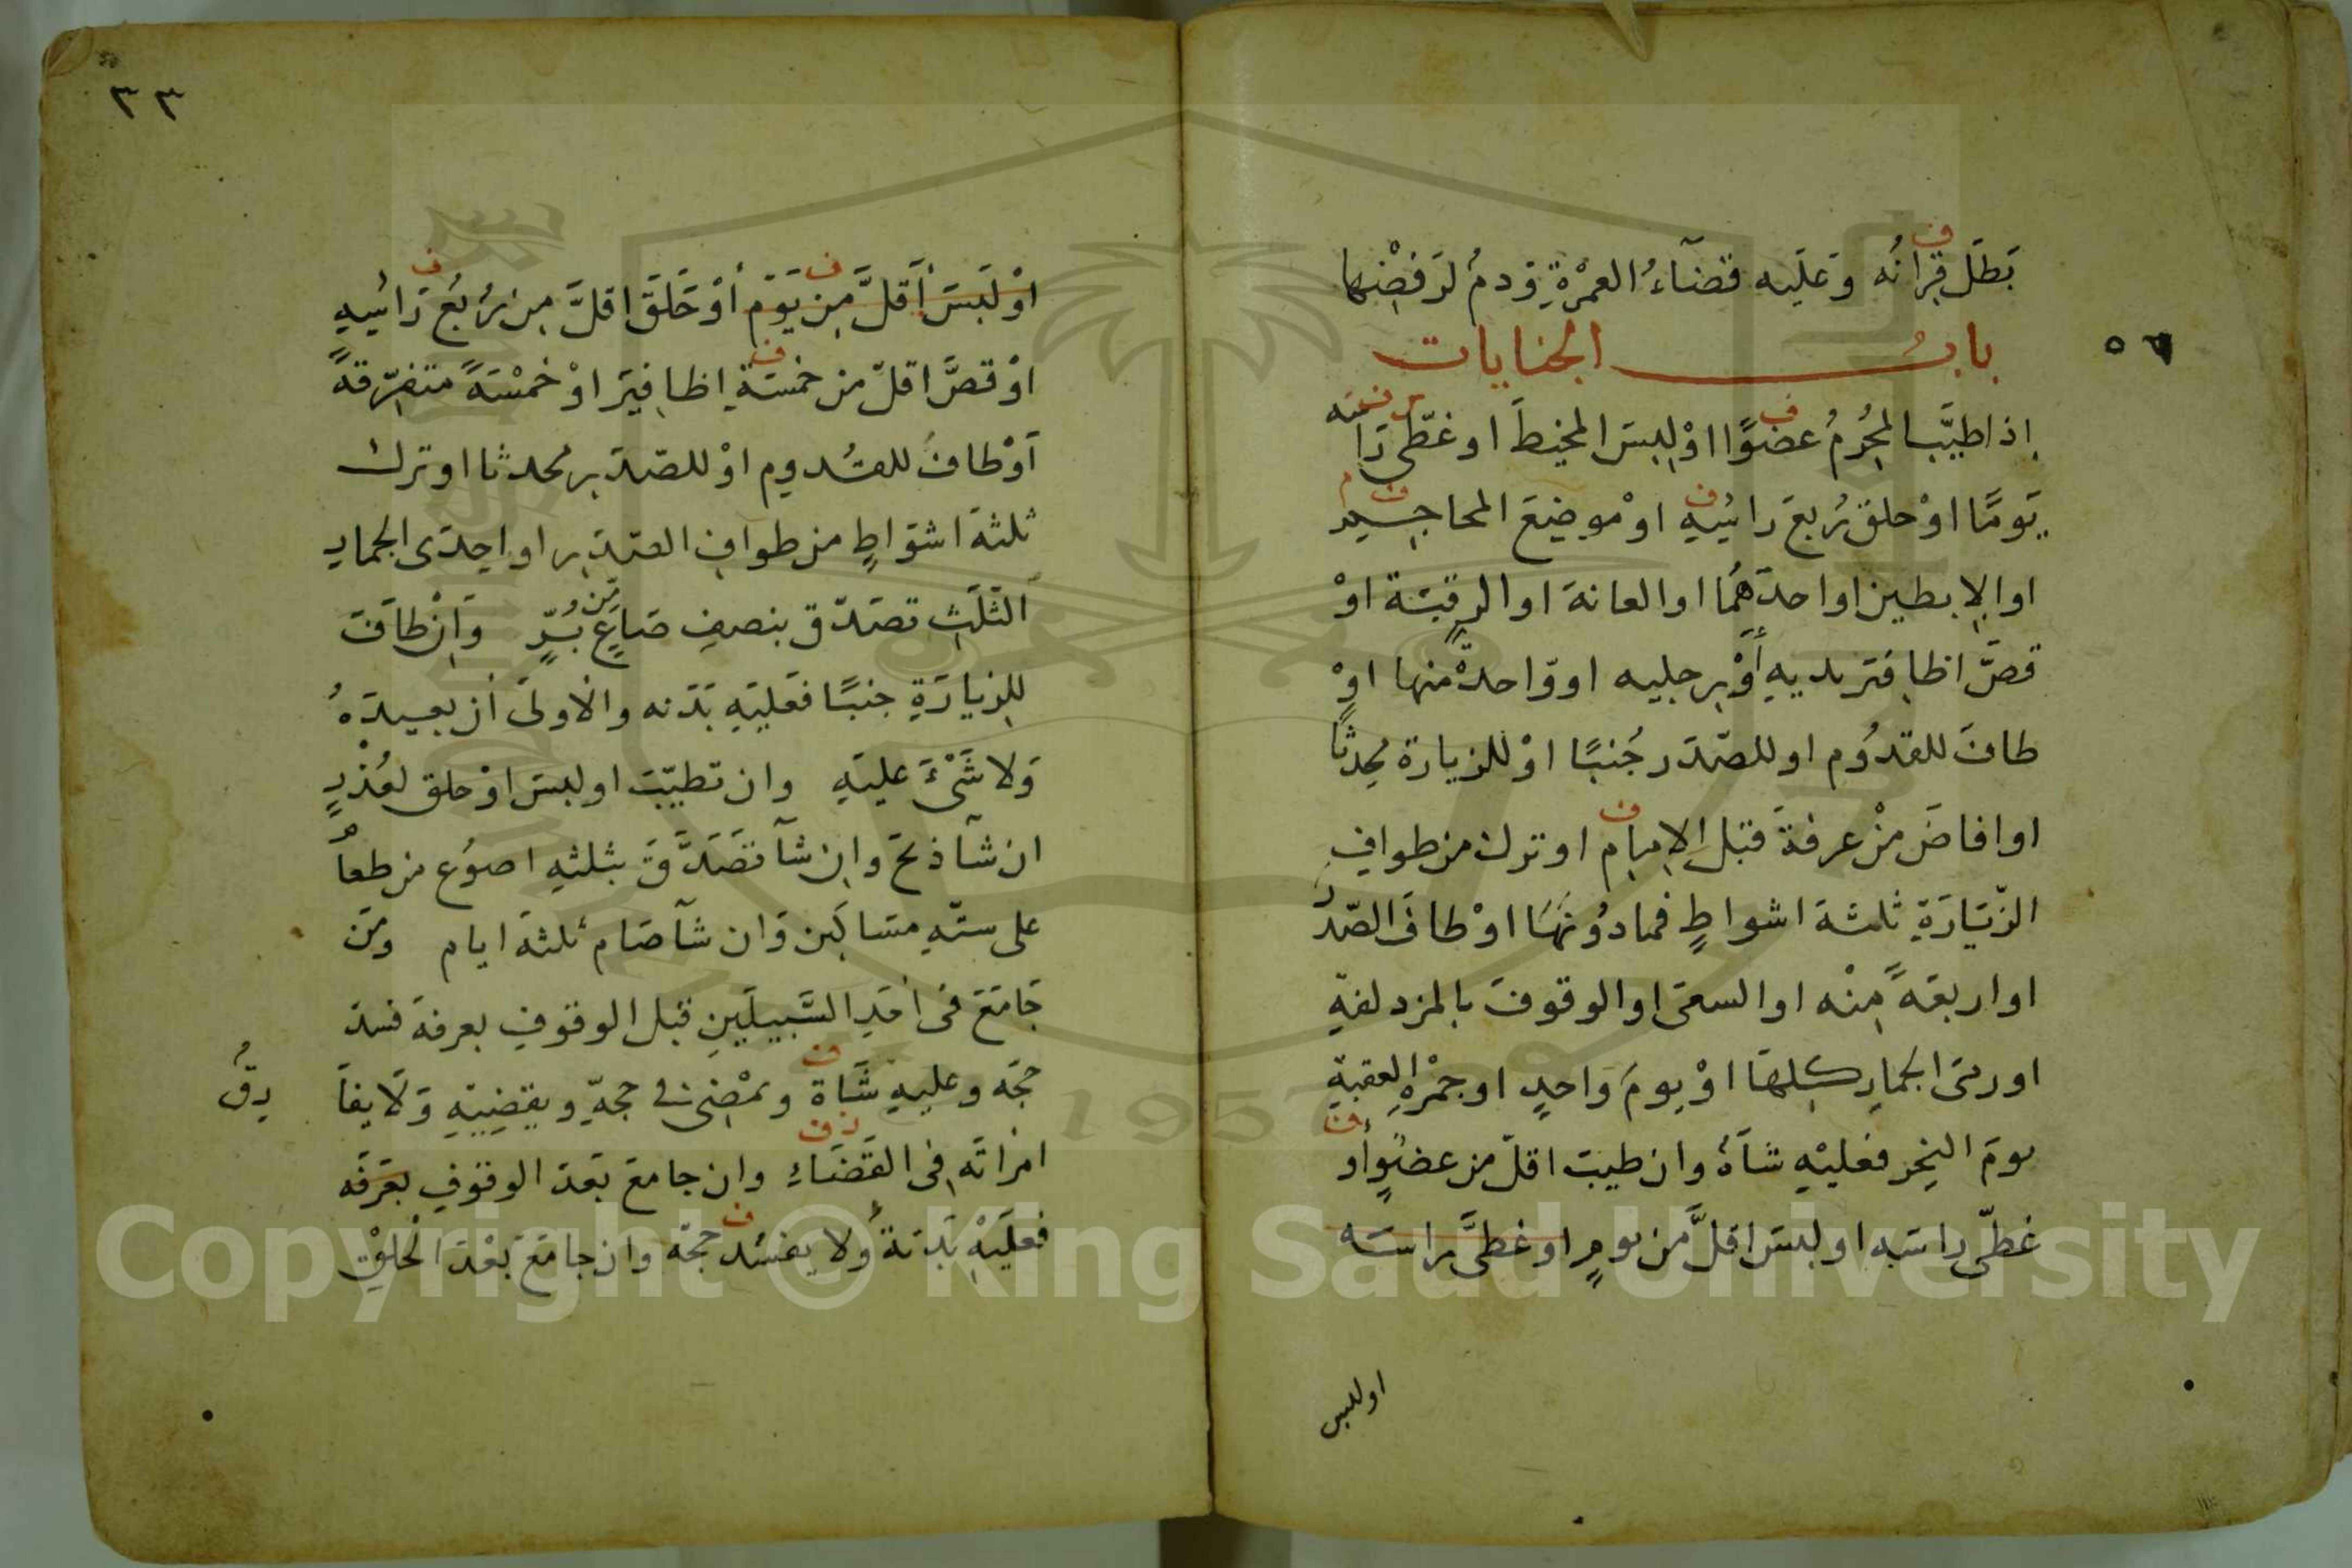 بَطَلَ قِرانُه وَعَلَيه قضآءُ العمْرَةِ وَدمُ لرَفضِها
بابُ الجنايات
٥٦
اِذا طيَّب المُحرِمُ عضوًا اوْ لبِسَ المخيطَ او غطّى رَاسَه
يَومًا اوْ حلقَ رُبعَ راسِهِ اوْ موضِعَ المحاجِم
او الاِبطين او احدَهُمَا او العانةَ او الرقبَة اوْ
قصَّ اظافِرَ يديهِ أوْ رجليه او وَاحدةً منها اوْ
طافَ للقدُوم او للصّدَر جُنبًا اوْ للزيارة محدِثًا
او افاضَ مِنْ عرفةَ قبل الاِمام او ترك من طوافِ
الزّيَارَةِ ثلثةَ اشواطٍ فمادُونَهَا اوْ طافَ الصّدَرِ
او اربعَةً مِنْه او السعىَ او الوقوفَ بالمزدلفةِ
او رمىَ الجمارِ كلِهَا اوْ يومَ واحدٍ او جمْرةِ العقبةِ
يومَ النحرِ فعليْهِ شاَةٌ وان طيبَ اقلّ من عضوٍ أو
غطّى راسَه او لبسَ اقلَّ من يومٍ او غطىَّ راسَه
او لبس
٣٣
اوْ لَبسَ أقلَّ مِن يَوَم أوْ حَلَقَ اقلَّ مِن رُبُعِ رَاسِهِ
اوْ قصَّ اقلّ من خمسَةِ اظافِيرَ اوْ خمْسَةً متفرّقةً
اَوْ طافَ للقدوم اوْ للصّدَر محدثا او ترك
ثلثةَ اشوَاطٍ من طوافِ الصّدَرِ او احِدَى الجمارِ
الثَلَثِ تصَدّق بنصفِ صَاعٍ من بُرٍّ وَاِنْ طَافَ
لِلزيارَةِ جنبًا فعَليَهِ بَدَنه والاولىَ أن يعيدَهُ
وَلا شَىْءَ عليَهِ وان تطيّبَ او لبسَ اوْ حلق لعُذْرٍ
ان شآ ذبحَ وان شآ تصَدَّقَ بثلثهِ اصوُعٍ من طعامٍ
على ستّهِ مسَاكين وَان شآ صَام ثلثةَ ايام ومَن
جَامَعَ فى أحَدِ السَّبيلَينِ قبل الوقوفِ بعرفةَ فسدَ
حجَه وعليهِ شَاة ويمْضى فى حجهِ ويقضِيَهِ وَلَا يفاَ
رِقُ
امرَاتَه فِى القَضَاءِ وان جامعَ بَعدَ الوقوفِ بعَرَفَه
فعلَيَهْ بَدَنةٌ ولا يفسُد حجّه وان جامَعَ بَعْدَ الحلقِ